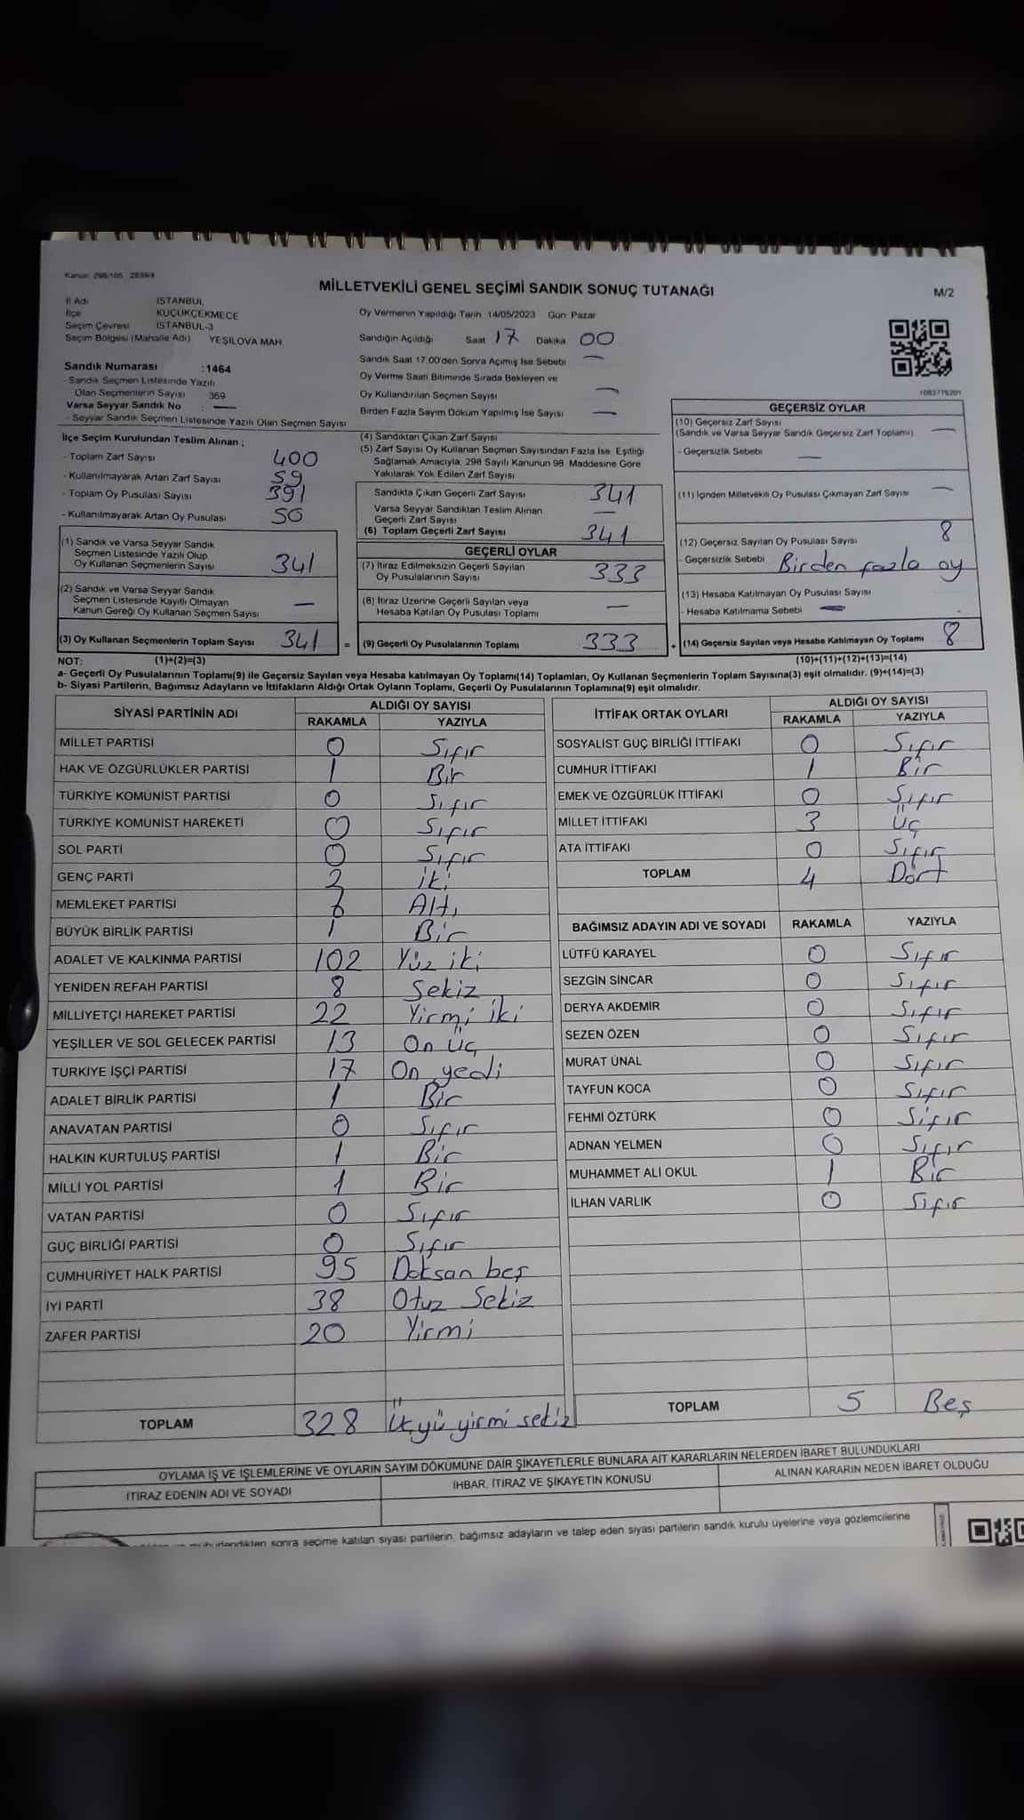 Kanun: 298/105
MİLLETVEKİLİ GENEL SEÇİMİ SANDIK SONUÇ TUTANAĞI
M/2
İl Adı İSTANBUL
İlçe KÜÇÜKÇEKMECE
Seçim Çevresi İSTANBUL-3
Seçim Bölgesi (Mahalle Adı) YEŞİLOVA MAH.
Sandık Numarası :1464
- Sandık Seçmen Listesinde Yazılı
Olan Seçmenlerin Sayısı 369
Varsa Seyyar Sandık No : —
- Seyyar Sandık Seçmen Listesinde Yazılı Olan Seçmen Sayısı
Oy Vermenin Yapıldığı Tarih 14/05/2023 Gün Pazar
Sandığın Açıldığı Saat 17 Dakika 00
Sandık Saat 17.00'den Sonra Açılmış İse Sebebi —
Oy Verme Saati Bitiminde Sırada Bekleyen ve
Oy Kullandırılan Seçmen Sayısı —
Birden Fazla Sayım Döküm Yapılmış İse Sayısı —
İlçe Seçim Kurulundan Teslim Alınan ;
- Toplam Zarf Sayısı 400
- Kullanılmayarak Artan Zarf Sayısı 59
- Toplam Oy Pusulası Sayısı 391
- Kullanılmayarak Artan Oy Pusulası 50
(1) Sandık ve Varsa Seyyar Sandık
Seçmen Listesinde Yazılı Olup
Oy Kullanan Seçmenlerin Sayısı 341
(2) Sandık ve Varsa Seyyar Sandık
Seçmen Listesinde Kayıtlı Olmayan
Kanun Gereği Oy Kullanan Seçmen Sayısı —
(3) Oy Kullanan Seçmenlerin Toplam Sayısı 341 =
(4) Sandıktan Çıkan Zarf Sayısı
(5) Zarf Sayısı Oy Kullanan Seçmen Sayısından Fazla İse, Eşitliği
Sağlamak Amacıyla, 298 Sayılı Kanunun 98. Maddesine Göre
Yakılarak Yok Edilen Zarf Sayısı
Sandıkta Çıkan Geçerli Zarf Sayısı 341
Varsa Seyyar Sandıktan Teslim Alınan
Geçerli Zarf Sayısı —
(6) Toplam Geçerli Zarf Sayısı 341
GEÇERLİ OYLAR
(7) İtiraz Edilmeksizin Geçerli Sayılan
Oy Pusulalarının Sayısı 333
(8) İtiraz Üzerine Geçerli Sayılan veya
Hesaba Katılan Oy Pusulası Toplamı —
(9) Geçerli Oy Pusulalarının Toplamı 333 +
GEÇERSİZ OYLAR
(10) Geçersiz Zarf Sayısı
(Sandık ve Varsa Seyyar Sandık Geçersiz Zarf Toplamı) —
- Geçersizlik Sebebi —
(11) İçinden Milletvekili Oy Pusulası Çıkmayan Zarf Sayısı —
(12) Geçersiz Sayılan Oy Pusulası Sayısı 8
- Geçersizlik Sebebi Birden fazla oy
(13) Hesaba Katılmayan Oy Pusulası Sayısı
- Hesaba Katılmama Sebebi —
(14) Geçersiz Sayılan veya Hesaba Katılmayan Oy Toplamı 8
NOT: (1)+(2)=(3) (10)+(11)+(12)+(13)=(14)
a- Geçerli Oy Pusulalarının Toplamı(9) ile Geçersiz Sayılan veya Hesaba katılmayan Oy Toplamı(14) Toplamları, Oy Kullanan Seçmenlerin Toplam Sayısına(3) eşit olmalıdır. (9)+(14)=(3)
b- Siyasi Partilerin, Bağımsız Adayların ve İttifakların Aldığı Ortak Oyların Toplamı, Geçerli Oy Pusulalarının Toplamına(9) eşit olmalıdır.
SİYASİ PARTİNİN ADI ALDIĞI OY SAYISI
RAKAMLA YAZIYLA
MİLLET PARTİSİ 0 Sıfır
HAK VE ÖZGÜRLÜKLER PARTİSİ 1 Bir
TÜRKİYE KOMÜNİST PARTİSİ 0 Sıfır
TÜRKİYE KOMÜNİST HAREKETİ 0 Sıfır
SOL PARTİ 0 Sıfır
GENÇ PARTİ 2 iki
MEMLEKET PARTİSİ Altı
BÜYÜK BİRLİK PARTİSİ 1 Bir
ADALET VE KALKINMA PARTİSİ 102 Yüz iki
YENİDEN REFAH PARTİSİ 8 Sekiz
MİLLİYETÇİ HAREKET PARTİSİ 22 Yirmi iki
YEŞİLLER VE SOL GELECEK PARTİSİ 13 On üç
TÜRKİYE İŞÇİ PARTİSİ 17 On yedi
ADALET BİRLİK PARTİSİ 1 Bir
ANAVATAN PARTİSİ 0 Sıfır
HALKIN KURTULUŞ PARTİSİ 1 Bir
MİLLİ YOL PARTİSİ 1 Bir
VATAN PARTİSİ 0 Sıfır
GÜÇ BİRLİĞİ PARTİSİ 0 Sıfır
CUMHURİYET HALK PARTİSİ 95 Doksan beş
İYİ PARTİ 38 Otuz Sekiz
ZAFER PARTİSİ 20 Yirmi
TOPLAM 328 Üçyü yirmi sekiz
İTTİFAK ORTAK OYLARI ALDIĞI OY SAYISI
RAKAMLA YAZIYLA
SOSYALİST GÜÇ BİRLİĞİ İTTİFAKI 0 Sıfır
CUMHUR İTTİFAKI 1 Bir
EMEK VE ÖZGÜRLÜK İTTİFAKI 0 Sıfır
MİLLET İTTİFAKI 3 Üç
ATA İTTİFAKI 0 Sıfır
TOPLAM 4 Dört
BAĞIMSIZ ADAYIN ADI VE SOYADI RAKAMLA YAZIYLA
LÜTFÜ KARAYEL 0 Sıfır
SEZGİN SİNCAR 0 Sıfır
DERYA AKDEMİR 0 Sıfır
SEZEN ÖZEN 0 Sıfır
MURAT ÜNAL 0 Sıfır
TAYFUN KOCA 0 Sıfır
FEHMİ ÖZTÜRK 0 Sıfır
ADNAN YELMEN 0 Sıfır
MUHAMMET ALİ OKUL 1 Bir
İLHAN VARLIK 0 Sıfır
TOPLAM 5 Beş
OYLAMA İŞ VE İŞLEMLERİNE VE OYLARIN SAYIM DÖKÜMÜNE DAİR ŞİKAYETLERLE BUNLARA AİT KARARLARIN NELERDEN İBARET BULUNDUKLARI
İTİRAZ EDENİN ADI VE SOYADI İHBAR, İTİRAZ VE ŞİKAYETİN KONUSU ALINAN KARARIN NEDEN İBARET OLDUĞU
sonra seçime katılan siyasi partilerin, bağımsız adayların ve talep eden siyasi partilerin sandık kurulu üyelerine veya gözlemcilerine